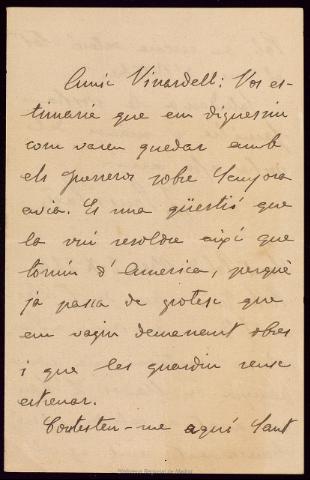 Amic Vinardell: Vos es-
timaria que em diguessiu
com varen quedar amb
els Guerrero sobre Senyora
avia. Es una qüestió que
la vui resoldre aixi que
tornin d'America, perquè
ja passa de grotesc que
em vagin demanant obres
i que les guardin sense
estrenar.
Contesten-me aquí Sant